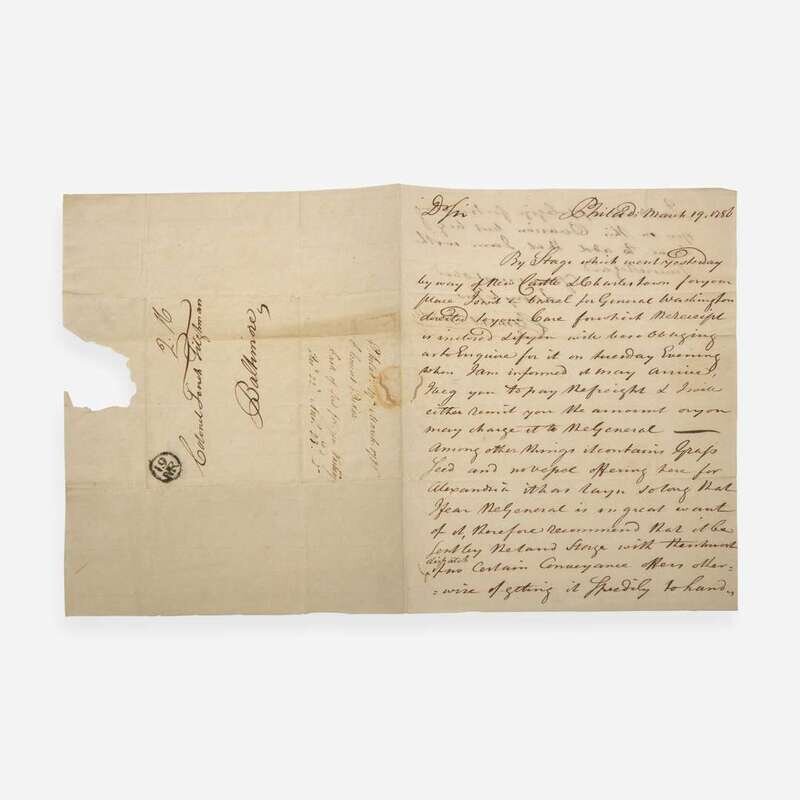 Dr Sir Philada March 19. 1786
By Stage which went yesterday
by way of New Castle & Charlestown for your
place I sent a barrel for General Washington
directed to your Care for which the Receipt
is inclosed & if you will be so obliging
as to Enquire for it on tuesday Evening
when I am informed it may arrive,
I beg you to pay the freight & I will
either remit you the amount or you
may charge it to the General —
Among other things it contains Grass
Seed and no vessel offering here for
Alexandria it has layn so long that
I fear the General is in great want
of it, therefore recommend that it be
sent by the land Stage with the utmost
dispatch
if no Certain Conveyance offers other=
=wise of getting it Speedily to hand,
Colonel Tench Tilghman
Baltimore
19
MR
Philada 19th March 1786